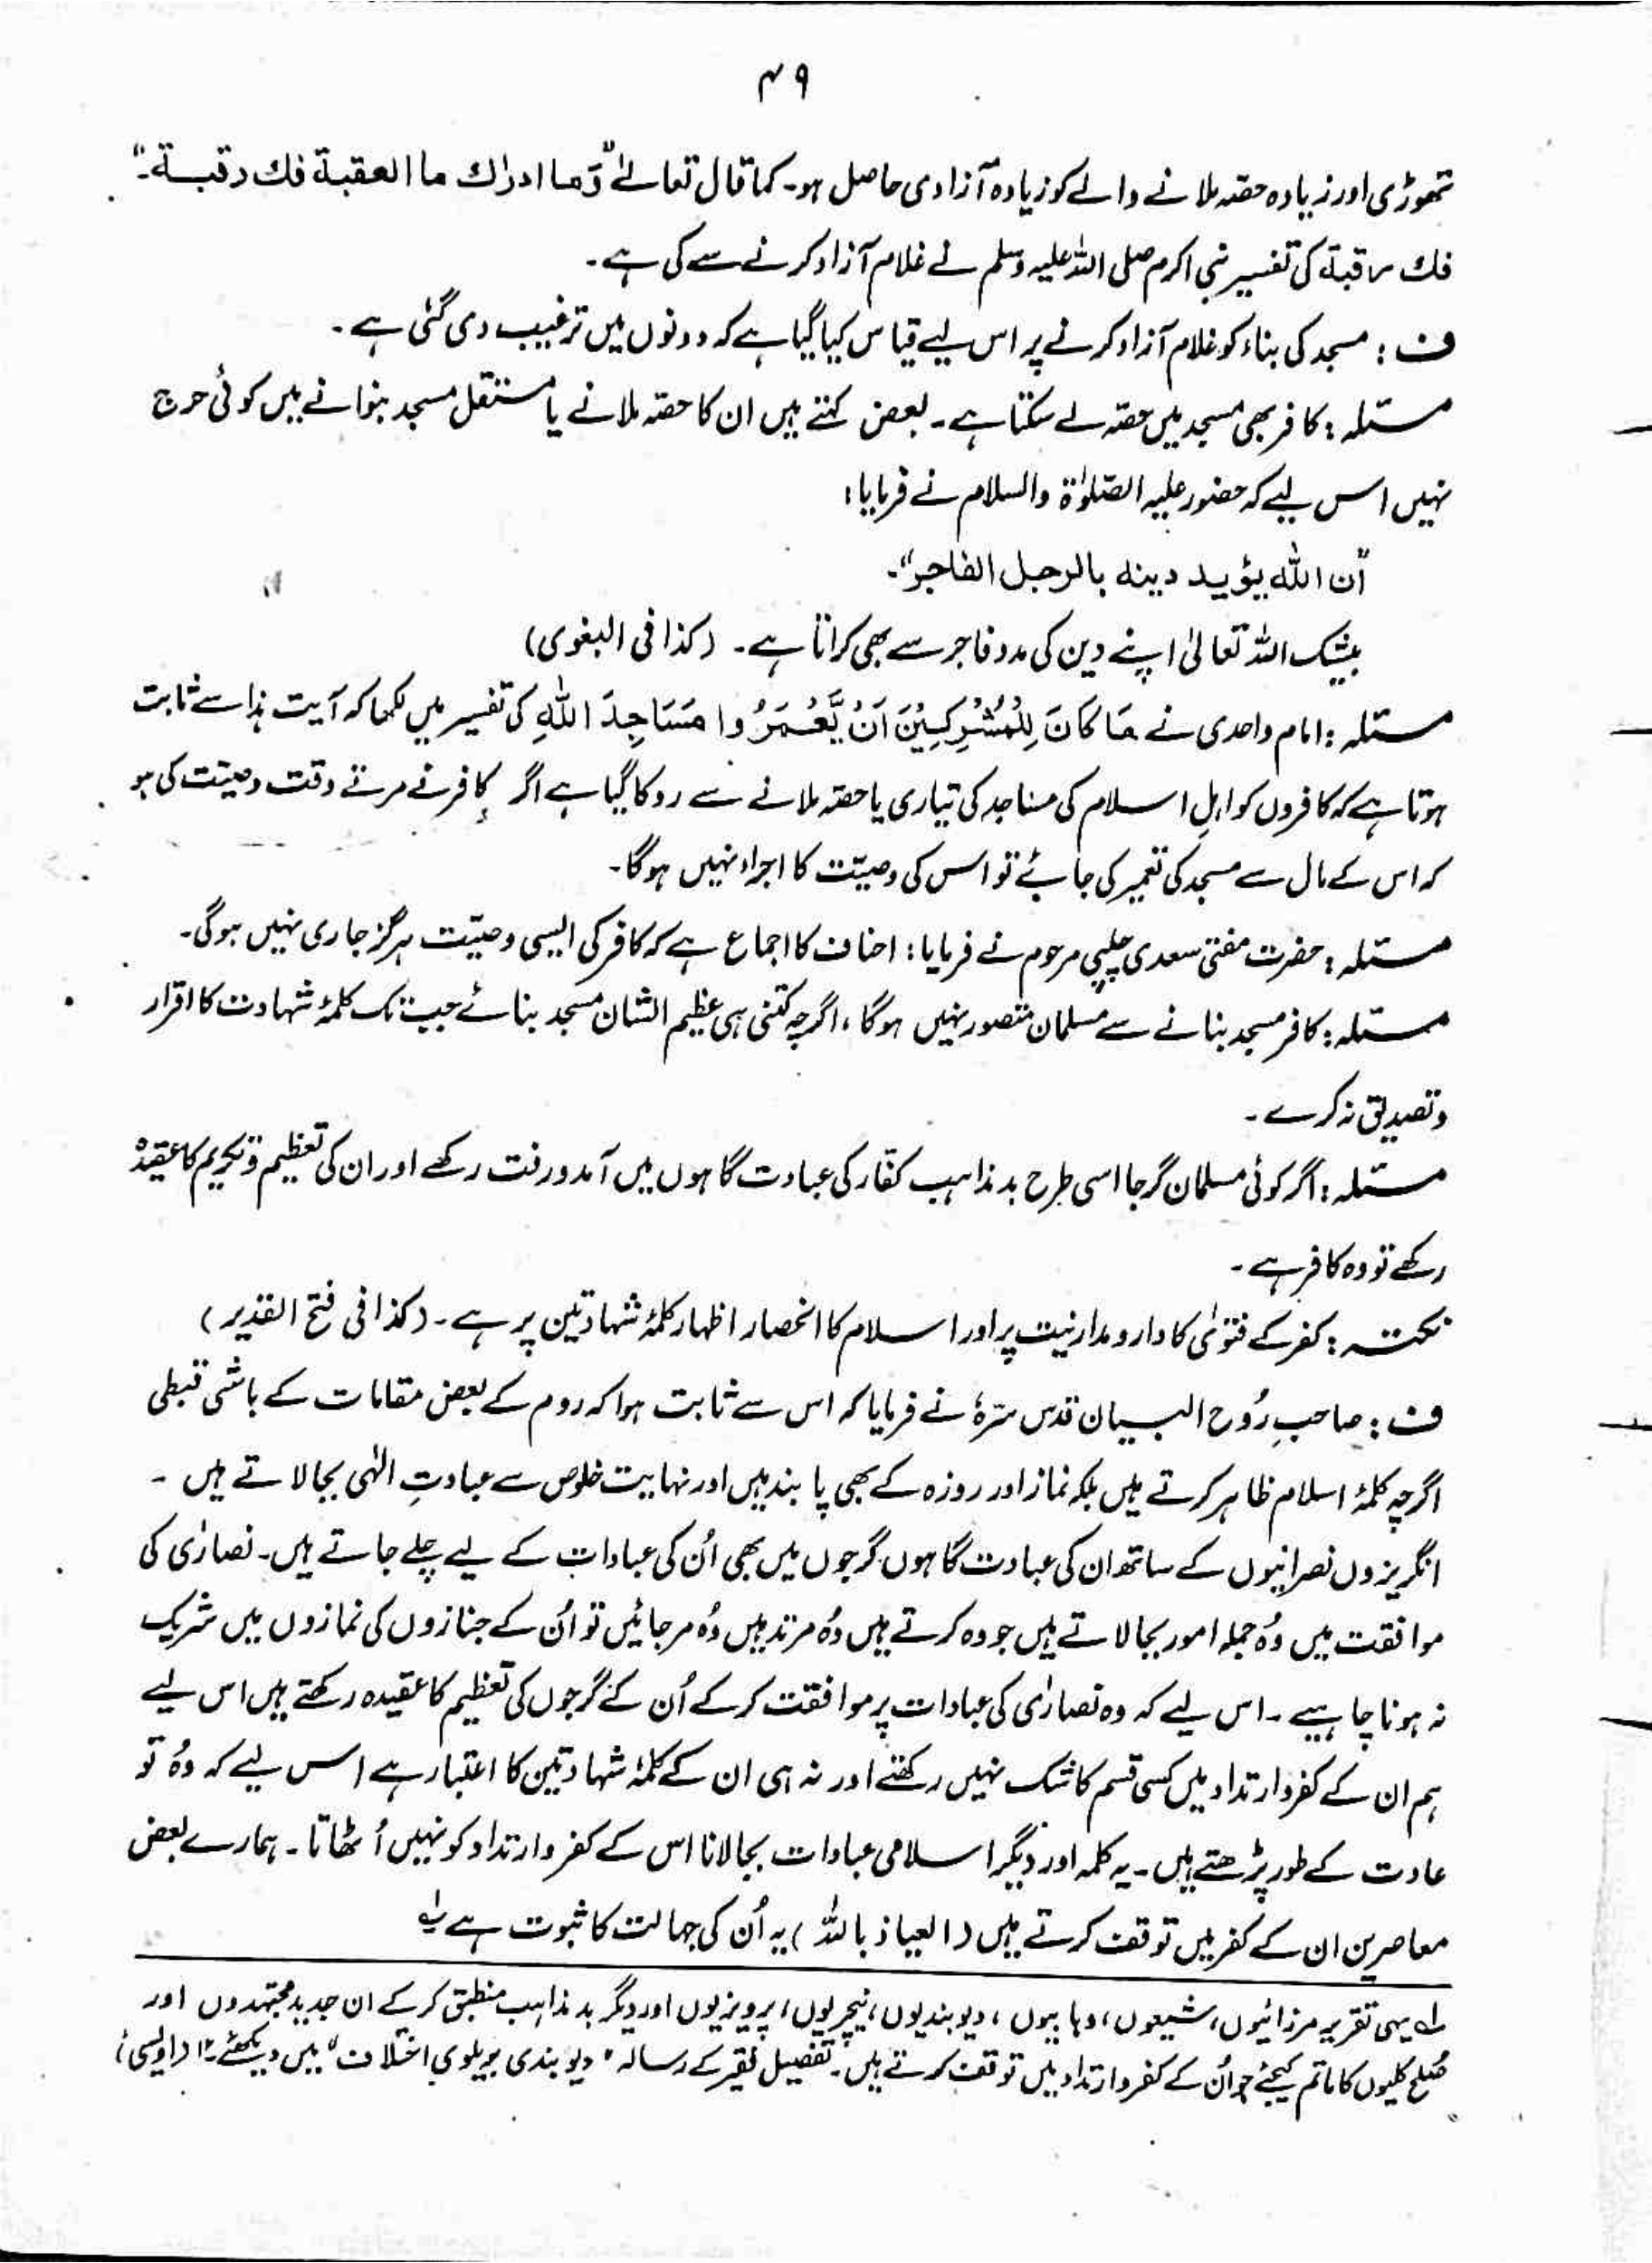 ۴۹
تھوڑی اور زیادہ حصّہ ملانے والے کو زیادہ آزادی حاصل ہو۔ کما قال تعالےٰ "وَما ادرٰك ما العقبة فك رقبة۔"
فك رقبة کی تفسیر نبی اکرم صلی اللہ علیہ وسلم نے غلام آزاد کرنے سے کی ہے۔
ف : مسجد کی بناء کو غلام آزاد کرنے پر اس لیے قیاس کیا گیا ہے کہ دونوں میں ترغیب دی گئی ہے۔
مسئلہ : کافر بھی مسجد میں حصّہ لے سکتا ہے۔ بعض کہتے ہیں ان کا حصّہ ملانے یا مستقل مسجد بنوانے میں کوئی حرج
نہیں اس لیے کہ حضور علیہ الصّلوٰۃ والسلام نے فرمایا :
"ان اللہ یؤید دینہ بالرجل الفاجر"۔
بیشک اللہ تعالیٰ اپنے دین کی مدد فاجر سے بھی کراتا ہے۔ (کذا فی البغوی)
مسئلہ : امام واحدی نے مَا كَانَ لِلْمُشْرِكِيْنَ اَنْ يَّعْمُرُوا مَسَاجِدَ اللهِ کی تفسیر میں لکھا کہ آیت ہذا سے ثابت
ہوتا ہے کہ کافروں کو اہلِ اسلام کی مساجد کی تیاری یا حصّہ ملانے سے روکا گیا ہے اگر کافر نے مرتے وقت وصیّت کی ہو
کہ اس کے مال سے مسجد کی تعمیر کی جائے تو اس کی وصیّت کا اجراء نہیں ہوگا۔
مسئلہ : حضرت مفتی سعدی چلپی مرحوم نے فرمایا : احناف کا اجماع ہے کہ کافر کی ایسی وصیّت ہرگز جاری نہیں ہوگی۔
مسئلہ : کافر مسجد بنانے سے مسلمان متصور نہیں ہوگا، اگرچہ کتنی ہی عظیم الشان مسجد بنائے جب تک کلمۂ شہادت کا اقرار
و تصدیق نہ کرے۔
مسئلہ : اگر کوئی مسلمان گرجا اسی طرح بد مذاہب کفّار کی عبادت گاہوں میں آمدورفت رکھے اور ان کی تعظیم و تکریم کا عقیدہ
رکھے تو وہ کافر ہے۔
نکتہ : کفر کے فتویٰ کا دارومدار نیت پر اور اسلام کا انحصار اظہار کلمۂ شہادتین پر ہے۔ (کذا فی فتح القدیر)
ف : صاحبِ رُوح البیان قدس سرّہٗ نے فرمایا کہ اس سے ثابت ہوا کہ روم کے بعض مقامات کے باشی قبطی
اگرچہ کلمۂ اسلام ظاہر کرتے ہیں بلکہ نماز اور روزہ کے بھی پابند ہیں اور نہایت خلوص سے عبادتِ الٰہی بجا لاتے ہیں ۔
انگریزوں نصرانیوں کے ساتھ ان کی عبادت گاہوں گرجوں میں بھی اُن کی عبادات کے لیے چلے جاتے ہیں۔ نصارٰی کی
موافقت میں وُہ جملہ امور بجا لاتے ہیں جو وہ کرتے ہیں وُہ مرتد ہیں وُہ مر جائیں تو اُن کے جنازوں کی نمازوں میں شریک
نہ ہونا چاہیے ۔ اس لیے کہ وہ نصارٰی کی عبادات پر موافقت کر کے اُن کے گرجوں کی تعظیم کا عقیدہ رکھتے ہیں اس لیے
ہم ان کے کفر و ارتداد میں کسی قسم کا شک نہیں رکھتے اور نہ ہی ان کے کلمۂ شہادتین کا اعتبار ہے اس لیے کہ وُہ تو
عادت کے طور پڑھتے ہیں۔ یہ کلمہ اور دیگر اسلامی عبادات بجا لانا اس کے کفر و ارتداد کو نہیں اُٹھاتا۔ ہمارے بعض
معاصرین ان کے کفر میں توقف کرتے ہیں (العیاذ باللہ) یہ اُن کی جہالت کا ثبوت ہے لے
لے یہی تقریر مرزائیوں، شیعوں، وہابیوں، دیوبندیوں، نیچریوں، پرویزیوں اور دیگر بد مذاہب منطبق کر کے ان جدید مجتہدوں اور
صُلح کلیوں کا ماتم کیجئے جو اُن کے کفر و ارتداد میں توقف کرتے ہیں۔ تفصیل فقیر کے رسالہ "دیوبندی بریلوی اختلاف" میں دیکھئے ۱۲ (اویسی)